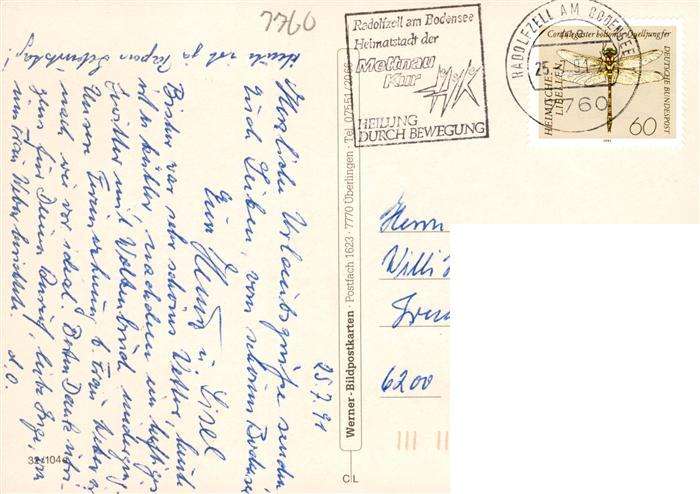 7760
Radolfzell am Bodensee
Heimatstadt der
Mettnau
Kur
HEILUNG
DURCH BEWEGUNG
RADOLFZELL AM BODENSEE
25.-7.91
760
Cordulegaster boltoni Quelljungfer
HEIMISCHE
LIBELLEN
DEUTSCHE BUNDESPOST
60
25.7.91
Herzliche Urlaubsgrüße senden
Euch Lieben, vom schönen Bodensee
Eure
u. Lisel
Bisher war sehr schönes Wetter, heute
ist es kühler, nachdem ein heftiges
Gewitter mit Wolkenbruch niederging.
Unsere b. Frau Weber ist
nach wie vor ideal. Besten Dank
für Deinen Anruf, liebe Inge, von
uns Frau Weber berichtete. d.O.
Heute ist ja
Werner-Bildpostkarten · Postfach 1623 · 7770 Überlingen · Tel. 07551/2066
Herrn
Willi
6200
32/104
CL